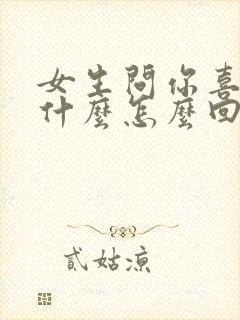 女生問你喜
什麼怎麼回
貳姑涼